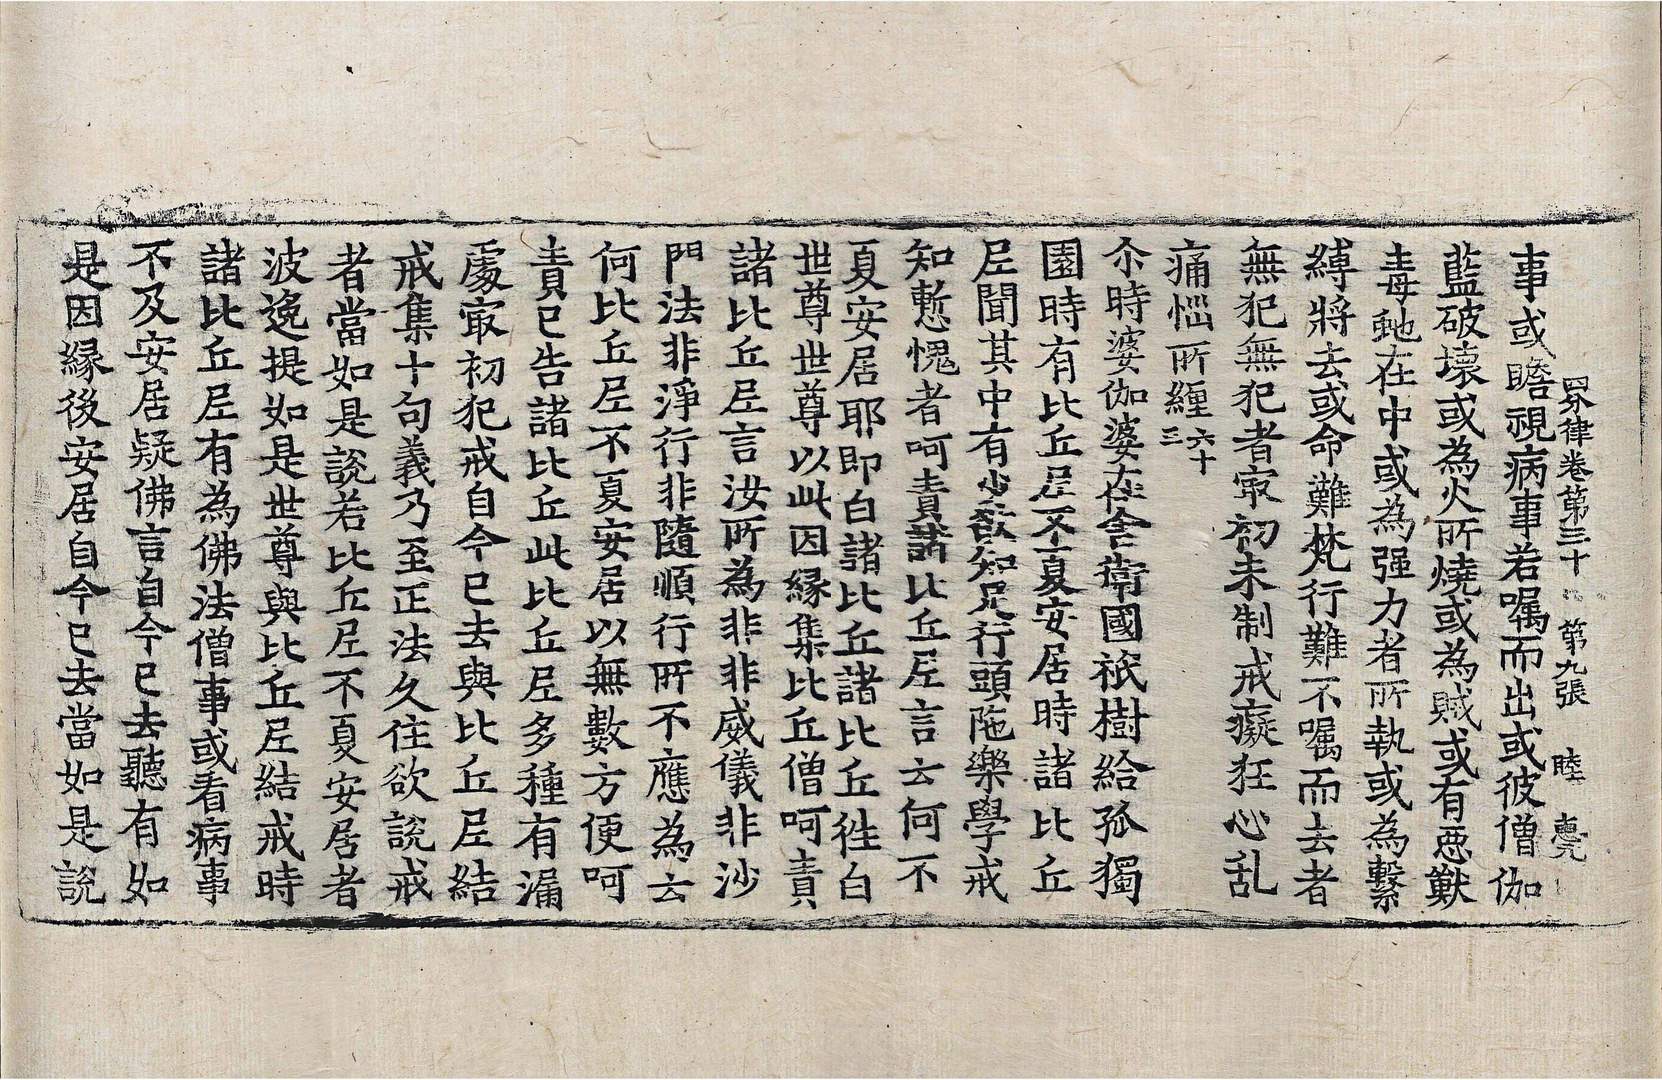 四分律卷第三十 第九張 睦
事或瞻視病事若嘱而出或彼僧伽
藍破壞或為火所燒或為賊或有惡獸
毒虵在中或為强力者所執或為繫
縛將去或命難梵行難不嘱而去者
無犯無犯者㝡初未制戒癡狂心乱
痛惱所纏六十三
尒時婆伽婆在舍衛國祇樹給孤獨
園時有比丘尼不夏安居時諸比丘
尼聞其中有少欲知足行頭陁樂學戒
知慙愧者呵責諸比丘尼言云何不
夏安居耶即白諸比丘諸比丘徃白
世尊世尊以此因緣集比丘僧呵責
諸比丘尼言汝所為非非威儀非沙
門法非淨行非隨順行所不應為云
何比丘尼不夏安居以無數方便呵
責已告諸比丘此比丘尼多種有漏
處㝡初犯戒自今已去與比丘尼結
戒集十句義乃至正法久住欲說戒
者當如是說若比丘尼不夏安居者
波逸提如是世尊與比丘尼結戒時
諸比丘尼有為佛法僧事或看病事
不及安居疑佛言自今已去聽有如
是因緣後安居自今已去當如是說